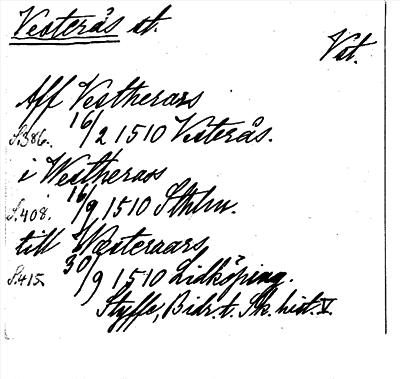 Vesterås st.
Vst.
Aff Vestherars
S.386. 16/2 1510 Vesterås.
i Westheraos
S.408. 16/9 1510 Sthlm.
till Wæsteraars
S.415. 30/9 1510 Lidköping.
Styffe, Bidr. t. Sk. hist. V.